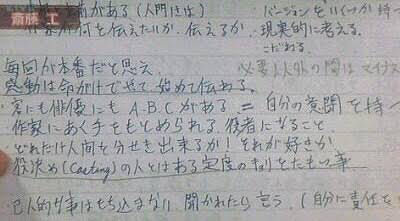 斎藤 工
がある(人間性は
何を伝えたいか 伝えるか
バージョンをいくつか持つ
現実的に考える
こだわる
毎回が本番だと思え
必要以外の間はマイナス
感動は命がけでやって始めて伝わる。
・客にも俳優にも A.B.C がある = 自分の意図を持つ
作家にあく手をもとめられる 役者になること
・どれだけ人間を分せき出来るか! それが好きか
役決め(Casting)の人とはある定度のキョリをたもつ事
・ 事はもち込まない 聞かれたら言う (自分に責任を